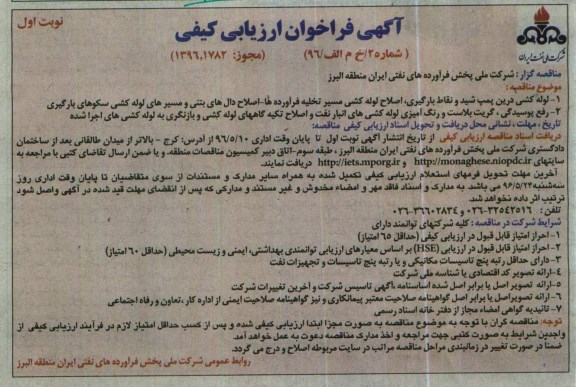 آگهی فراخوان ارزیابی کیفی
نوبت اول
( شماره ۲۵/خ م الف/۹۶)
(مجوز: ۱۳۹۶,۱۷۸۲)
شرکت ملی نفت ایران
مناقصه گزار : شرکت ملی پخش فرآورده های نفتی ایران منطقه البرز
موضوع مناقصه :
۱- لوله کشی درین پمپ شید و نقاط بارگیری، اصلاح لوله کشی مسیر تخلیه فرآورده ها-اصلاح دال های بتنی و مسیر های لوله کشی سکوهای بارگیری
۲- رفع پوسیدگی، گریت بلاست و رنگ آمیزی لوله کشی های انبار نفت و اصلاح تکیه گاههای لوله کشی و بازنگری به لوله کشی های اجرا شده
تاریخ ، مهلت ، نشانی محل دریافت و تحویل اسناد ارزیابی کیفی مناقصه:
دریافت اسناد مناقصه ارزیابی کیفی از تاریخ انتشار آگهی نوبت اول تا پایان وقت اداری ۹۶/۵/۱۰ از آدرس: کرج - بالاتر از میدان طالقانی بعد از ساختمان
دادگستری شرکت ملی پخش فرآورده های نفتی ایران منطقه البرز ، طبقه سوم -اتاق دبیر کمیسیون مناقصات منطقه. و یا ضمن ارسال تقاضای کتبی با مراجعه به
سایتهای http://monaghese.niopdc.ir و http://iets.mporg.ir دریافت نمایند.
آخرین مهلت تحویل فرمهای استعلام ارزیابی کیفی تکمیل شده به همراه سایر مدارک و مستندات از سوی متقاضیان تا پایان وقت اداری روز
سه‌شنبه ۹۶/۵/۲۴ می باشد به مدارک و اسناد فاقد مهر و امضاء مخدوش و غیر مستند و مدارکی که پس از انقضای مهلت قید شده در آگهی واصل شود
ترتیب اثر داده نخواهد شد.
تلفن : ۳۲۵۴۲۵۱۶-۰۲۶ و ۳۶۶۰۲۸۳۴-۰۲۶
شرایط شرکت در مناقصه: کلیه شرکتهای توانمند دارای
۱- احراز امتیاز قابل قبول در ارزیابی کیفی (حداقل ۶۵ امتیاز)
۲- احراز امتیاز قابل قبول در ارزیابی (HSE) بر اساس معیارهای ارزیابی توانمندی بهداشتی، ایمنی و زیست محیطی (حداقل ۶۰ امتیاز)
۳- دارای حداقل رتبه پنج تاسیسات مکانیکی و یا رتبه پنج تاسیسات و تجهیزات نفت
۴-ارائه تصویر کد اقتصادی یا شناسه ملی شرکت
۵- ارائه تصویر اصل یا برابر اصل شده اساسنامه ،آگهی تاسیس شرکت و آخرین تغییرات شرکت
۶- ارائه تصویراصل یا برابر اصل گواهینامه صلاحیت معتبر پیمانکاری و نیز گواهینامه صلاحیت ایمنی از اداره کار ،تعاون و رفاه اجتماعی
۷- تائیدیه گواهی امضاء مجاز از دفتر خانه اسناد رسمی
توجه: مناقصه گران با توجه به موضوع مناقصه به صورت مجزا ابتدا ارزیابی کیفی شده و پس از کسب حداقل امتیاز لازم در فرآیند ارزیابی کیفی از
واجدین شرایط به صورت کتبی جهت مراجعه و اخذ مدارک مناقصه دعوت به عمل خواهد آمد.
ضمنا در صورت تغییر در زمانبندی مراحل مناقصه مراتب در سایت مربوطه اصلاح و درج می گردد.
روابط عمومی شرکت ملی پخش فرآورده های نفتی ایران منطقه البرز